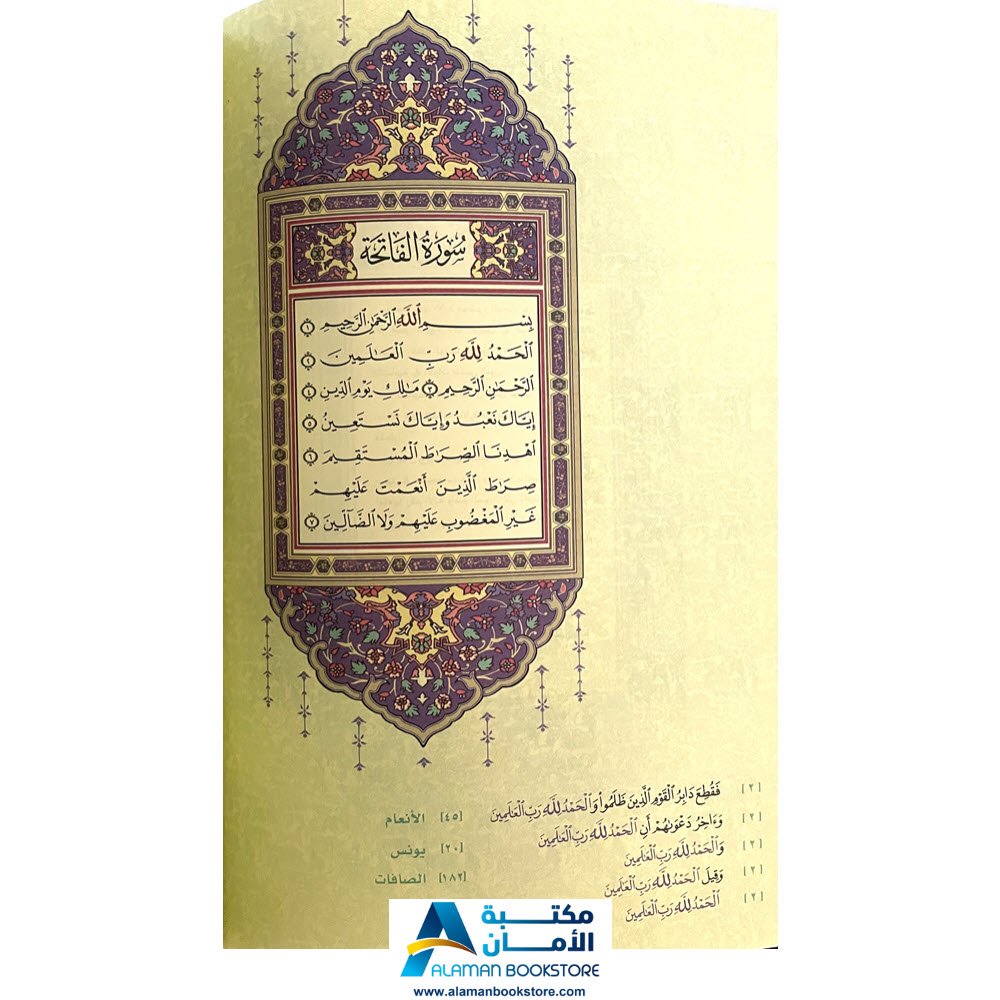 سُورَةُ الفَاتِحَةِ
بِسْمِ ٱللَّهِ ٱلرَّحْمَٰنِ ٱلرَّحِيمِ ١
ٱلْحَمْدُ لِلَّهِ رَبِّ ٱلْعَٰلَمِينَ ٢
ٱلرَّحْمَٰنِ ٱلرَّحِيمِ ٣ مَٰلِكِ يَوْمِ ٱلدِّينِ ٤
إِيَّاكَ نَعْبُدُ وَإِيَّاكَ نَسْتَعِينُ ٥
ٱهْدِنَا ٱلصِّرَٰطَ ٱلْمُسْتَقِيمَ ٦
صِرَٰطَ ٱلَّذِينَ أَنْعَمْتَ عَلَيْهِمْ
غَيْرِ ٱلْمَغْضُوبِ عَلَيْهِمْ وَلَا ٱلضَّآلِّينَ ٧
[٢] فَقُطِعَ دَابِرُ ٱلْقَوْمِ ٱلَّذِينَ ظَلَمُوا۟ وَٱلْحَمْدُ لِلَّهِ رَبِّ ٱلْعَٰلَمِينَ [٤٥] الأنعام
[٢] وَءَاخِرُ دَعْوَىٰهُمْ أَنِ ٱلْحَمْدُ لِلَّهِ رَبِّ ٱلْعَٰلَمِينَ [٢٠] يونس
[٢] وَٱلْحَمْدُ لِلَّهِ رَبِّ ٱلْعَٰلَمِينَ [١٨٢] الصافات
[٢] وَقِيلَ ٱلْحَمْدُ لِلَّهِ رَبِّ ٱلْعَٰلَمِينَ
[٢] ٱلْحَمْدُ لِلَّهِ رَبِّ ٱلْعَٰلَمِينَ
مكتبة
الأمان
ALAMAN BOOKSTORE
www.alamanbookstore.com